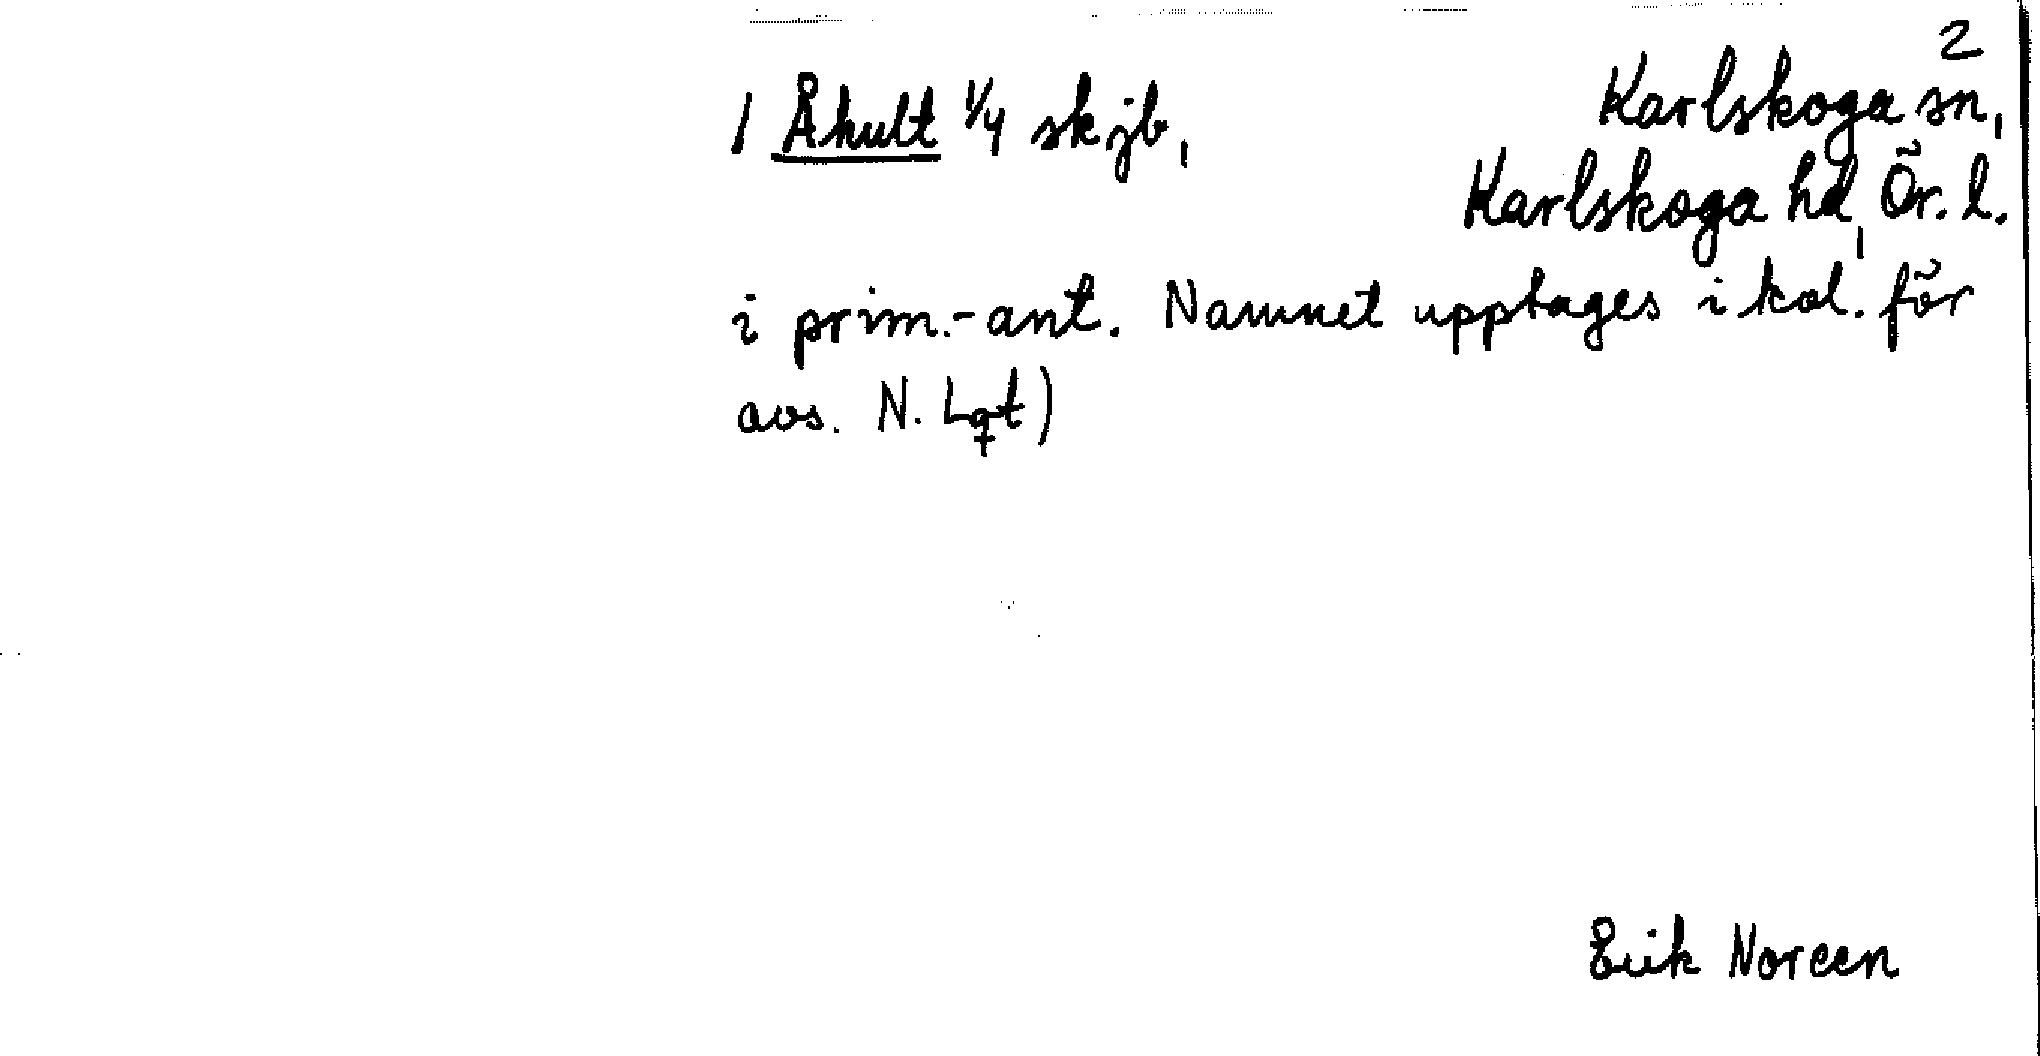 2
/ Åhult 1/4 skjb,
Karlskoga sn,
Karlskoga hd, Ör. l.
i prim.-ant. Namnet upptages i kol. för
avs. N. Lqt)
Erik Noreen